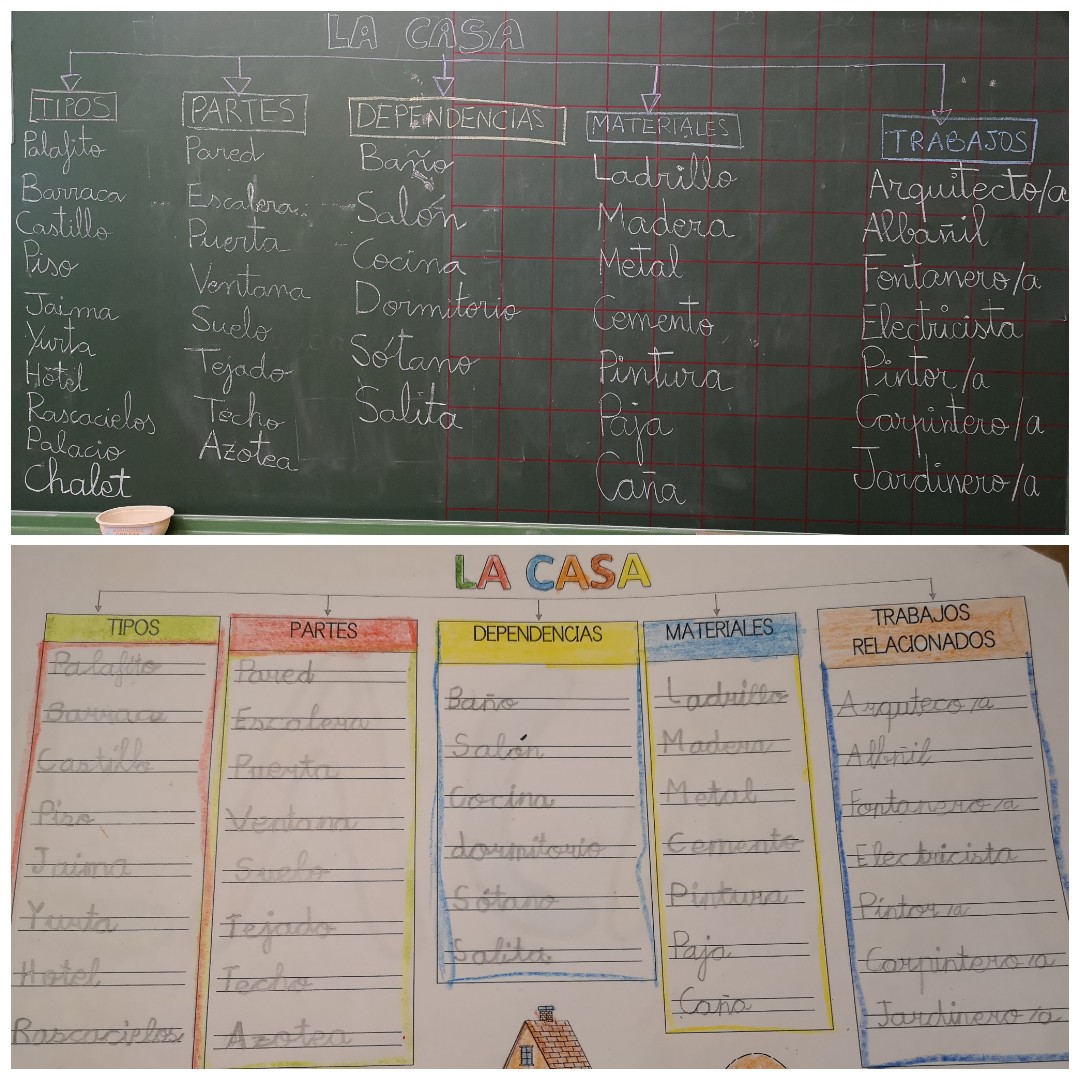 LA CASA
TIPOS
Palafito
Barraca
Castillo
Piso
Jaima
Yurta
Hotel
Rascacielos
Palacio
Chalet
PARTES
Pared
Escalera
Puerta
Ventana
Suelo
Tejado
Techo
Azotea
DEPENDENCIAS
Baño
Salón
Cocina
Dormitorio
Sótano
Salita
MATERIALES
Ladrillo
Madera
Metal
Cemento
Pintura
Paja
Caña
TRABAJOS
Arquitecto/a
Albañil
Fontanero/a
Electricista
Pintor/a
Carpintero/a
Jardinero/a
LA CASA
TIPOS
Palafito
Barraca
Castillo
Piso
Jaima
Yurta
Hotel
Rascacielos
PARTES
Pared
Escalera
Puerta
Ventana
Suelo
Tejado
Techo
Azotea
DEPENDENCIAS
Baño
Salón
Cocina
dormitorio
Sótano
Salita
MATERIALES
Ladrillo
Madera
Metal
Cemento
Pintura
Paja
Caña
TRABAJOS
RELACIONADOS
Arquteco/a
Albñil
Fontanero/a
Electricista
Pintor/a
Carpintero/a
Jardinero/a